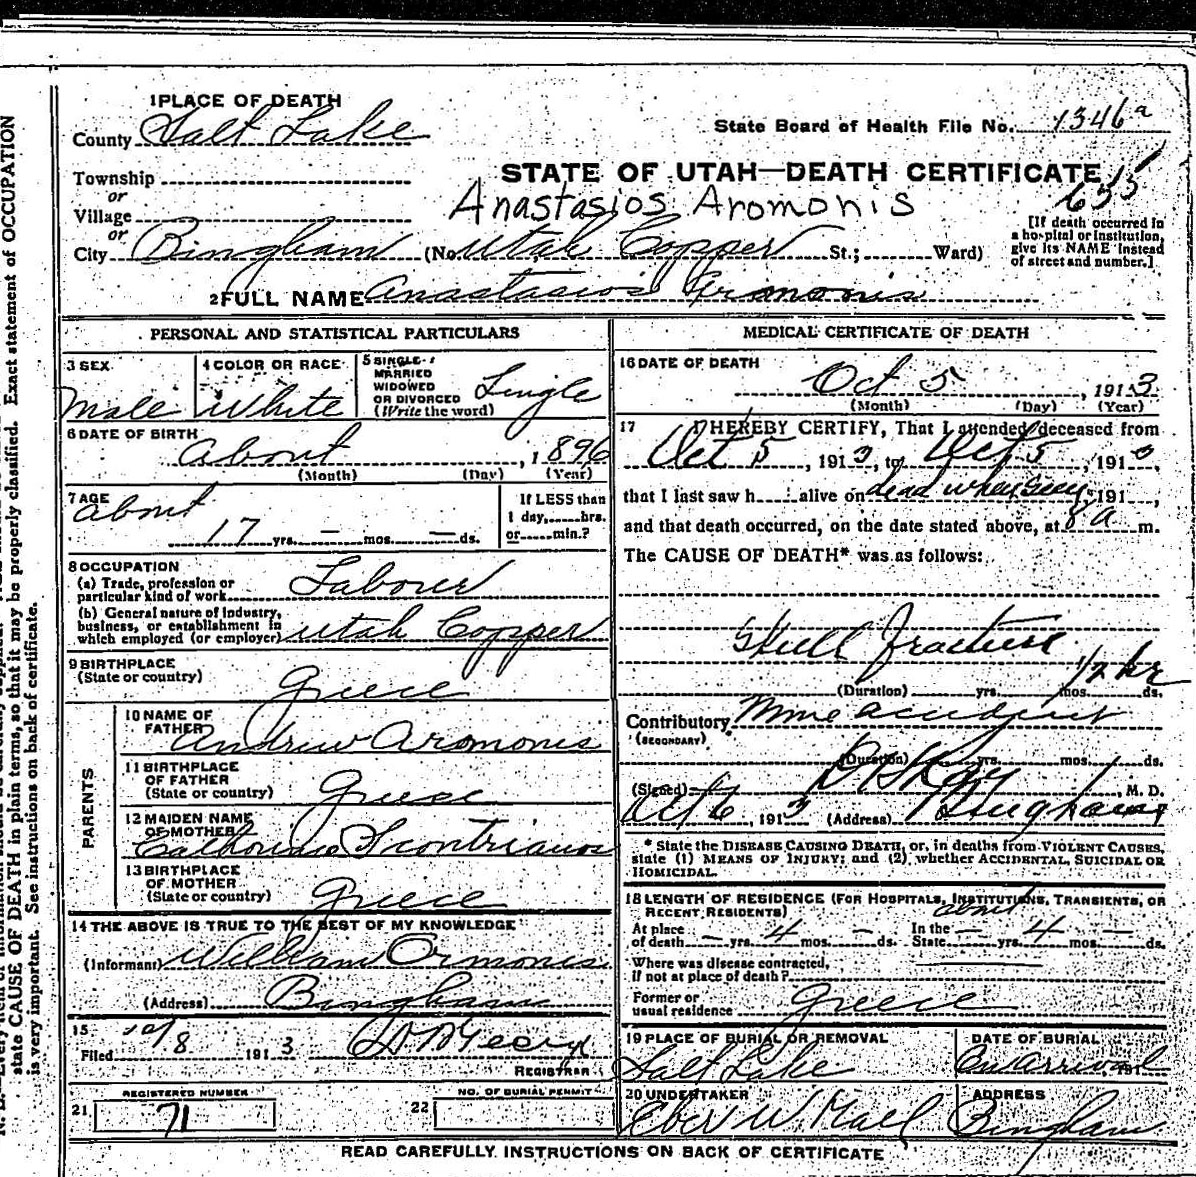 1 PLACE OF DEATH
County Salt Lake
State Board of Health File No. 1346a
Township
or
Village
or
STATE OF UTAH—DEATH CERTIFICATE
655
Anastasios Aromonis
City Bingham (No. Utah Copper St.; Ward)
[If death occurred in
a hospital or institution,
give its NAME instead
of street and number.]
2 FULL NAME Anastasios Aromonis
PERSONAL AND STATISTICAL PARTICULARS
3 SEX
Male
4 COLOR OR RACE
White
5 SINGLE
MARRIED
WIDOWED
OR DIVORCED
(Write the word)
Single
6 DATE OF BIRTH
about , 1896
(Month) (Day) (Year)
7 AGE
about
17 yrs. — mos. — ds.
If LESS than
1 day,......hrs.
or......min.?
8 OCCUPATION
(a) Trade, profession or
particular kind of work Laborer
(b) General nature of industry,
business, or establishment in
which employed (or employer) Utah Copper
9 BIRTHPLACE
(State or country)
Greece
PARENTS
10 NAME OF
FATHER
Andrew Aromonis
11 BIRTHPLACE
OF FATHER
(State or country) Greece
12 MAIDEN NAME
OF MOTHER
13 BIRTHPLACE
OF MOTHER
(State or country) Greece
14 THE ABOVE IS TRUE TO THE BEST OF MY KNOWLEDGE
(Informant) William Ormonis
(Address) Bingham
15
Filed 10/8 1913
REGISTRAR
REGISTERED NUMBER
21 71
NO. OF BURIAL PERMIT
22
MEDICAL CERTIFICATE OF DEATH
16 DATE OF DEATH
Oct 5 , 1913
(Month) (Day) (Year)
17 I HEREBY CERTIFY, That I attended deceased from
Oct 5 , 1913, to Oct 5 , 1913,
that I last saw h...... alive on dead when seen, 191...,
and that death occurred, on the date stated above, at 8 a m.
The CAUSE OF DEATH* was as follows:
Skull Fracture
1/2 hr
(Duration) yrs. mos. ds.
Contributory Mine accident
(SECONDARY)
(Duration) yrs. mos. ds.
(Signed) , M. D.
Oct 6, 1913 (Address) Bingham
* State the DISEASE CAUSING DEATH, or, in deaths from VIOLENT CAUSES,
state (1) MEANS OF INJURY; and (2) whether ACCIDENTAL, SUICIDAL OR
HOMICIDAL.
18 LENGTH OF RESIDENCE (FOR HOSPITALS, INSTITUTIONS, TRANSIENTS, OR
RECENT RESIDENTS) about
At place In the
of death — yrs. 4 mos. — ds. State — yrs. 4 mos. — ds.
Where was disease contracted,
if not at place of death?
Former or
usual residence Greece
19 PLACE OF BURIAL OR REMOVAL
Salt Lake
DATE OF BURIAL
On arrival 191
20 UNDERTAKER
Eber W. Hall
ADDRESS
Bingham
READ CAREFULLY INSTRUCTIONS ON BACK OF CERTIFICATE
state CAUSE OF DEATH in plain terms, so that it may be properly classified. Exact statement of OCCUPATION
is very important. See instructions on back of certificate.